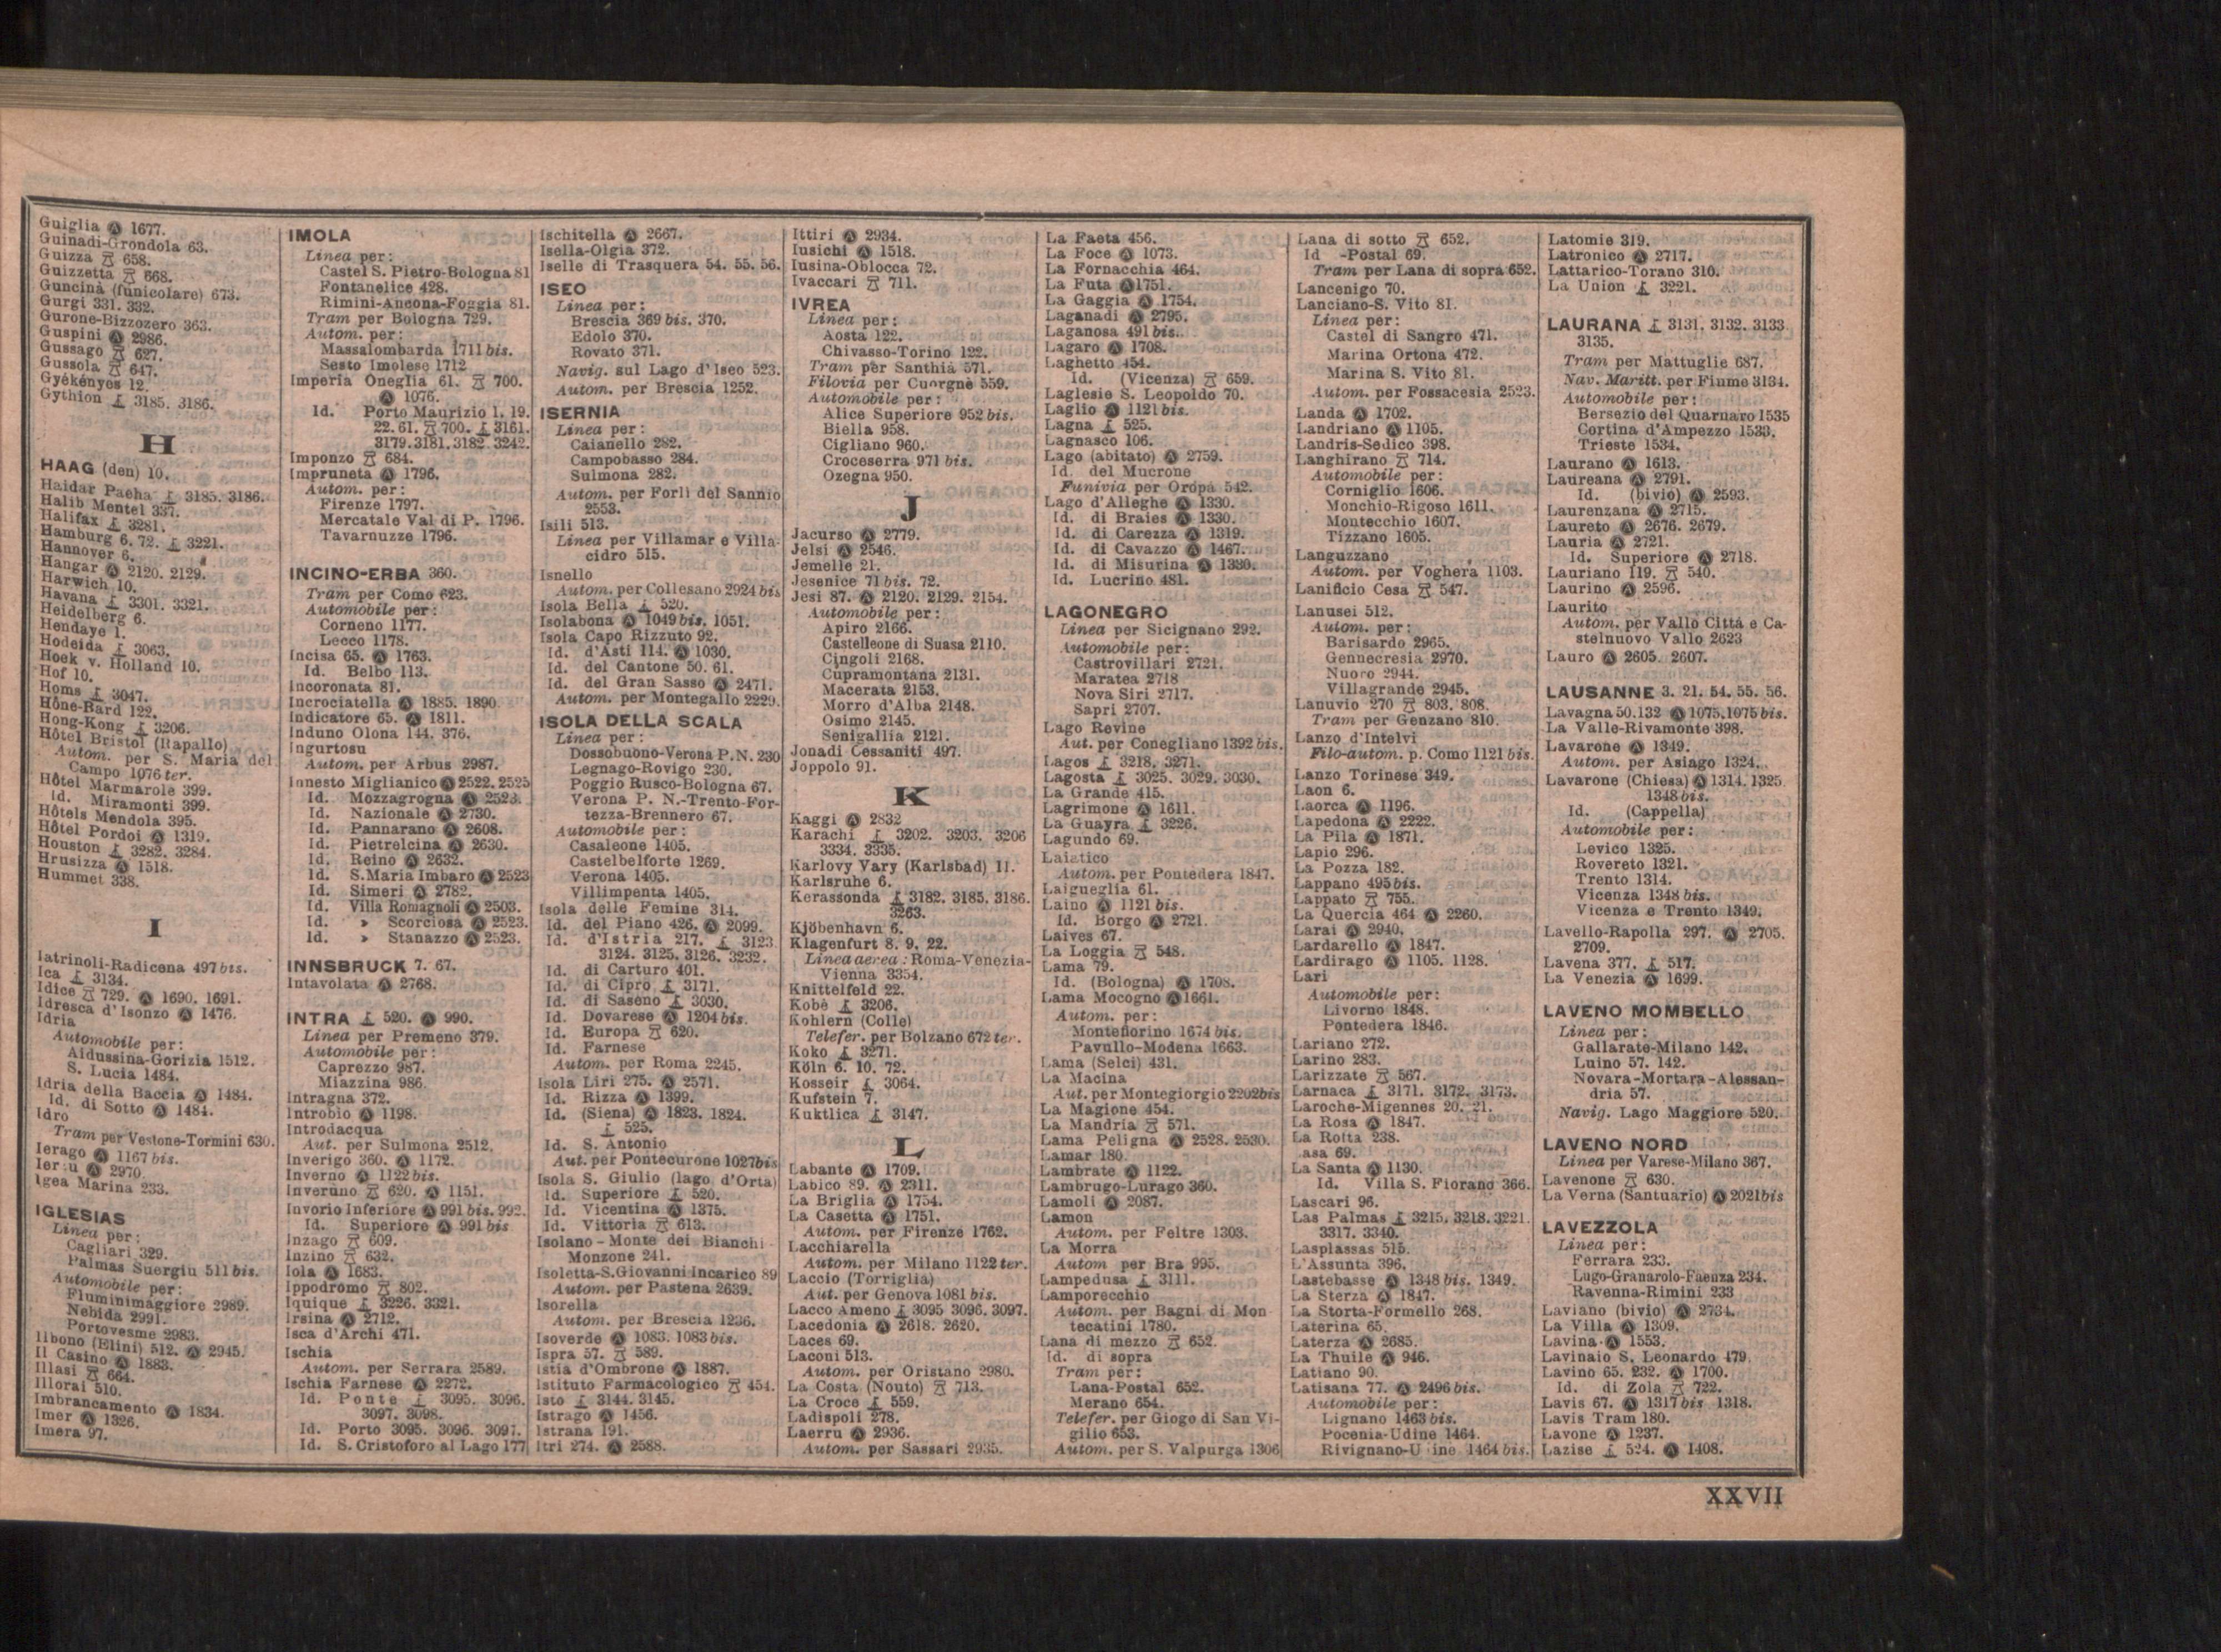 Guiglia Ⓐ 1677.
Guinadi-Grondola 63.
Guizza 658.
Guizzetta 668.
Guncinà (funicolare) 673.
Gurgi 331. 332.
Gurone-Bizzozero 363.
Guspini Ⓐ 2986.
Gussago 627.
Gussola 647.
Gyékényes 12.
Gythion 3185. 3186.
H
HAAG (den) 10.
Haidar Pacha 3185. 3186.
Halib Mentel 337.
Halifax 3281.
Hamburg 6. 72. 3221.
Hannover 6.
Hangar Ⓐ 2120. 2129.
Harwich 10.
Havana 3301. 3321.
Heidelberg 6.
Hendaye 1.
Hodeida 3063.
Hoek v. Holland 10.
Hof 10.
Homs 3047.
Hône-Bard 122.
Hong-Kong 3206.
Hôtel Bristol (Rapallo)
Autom. per S. Maria del
Campo 1076 ter.
Hôtel Marmarole 399.
Id. Miramonti 399.
Hôtels Mendola 395.
Hôtel Pordoi Ⓐ 1319.
Houston 3282. 3284.
Hrusizza Ⓐ 1518.
Hummet 338.
I
Iatrinoli-Radicena 497 bis.
Ica 3134.
Idice 729. Ⓐ 1690. 1691.
Idresca d'Isonzo Ⓐ 1476.
Idria
Automobile per:
Aidussina-Gorizia 1512.
S. Lucia 1484.
Idria della Baccia Ⓐ 1484.
Id. di Sotto Ⓐ 1484.
Idro
Tram per Vestone-Tormini 630.
Ierago Ⓐ 1167 bis.
Ier u Ⓐ 2970.
Igea Marina 233.
IGLESIAS
Linea per:
Cagliari 329.
Palmas Suergiu 511 bis.
Automobile per:
Fluminimaggiore 2989.
Nebida 2991.
Portovesme 2983.
Ilbono (Elini) 512. Ⓐ 2945.
Il Casino Ⓐ 1883.
Illasi 664.
Illorai 510.
Imbrancamento Ⓐ 1834.
Imer Ⓐ 1326.
Imera 97.
IMOLA
Linea per:
Castel S. Pietro-Bologna 81
Fontanelice 428.
Rimini-Ancona-Foggia 81.
Tram per Bologna 729.
Autom. per:
Massalombarda 1711 bis.
Sesto Imolese 1712
Imperia Oneglia 61. 700.
Ⓐ 1076.
Id. Porto Maurizio 1. 19.
22. 61. 700. 3161.
3179. 3181. 3182. 3242.
Imponzo 684.
Impruneta Ⓐ 1796.
Autom. per:
Firenze 1797.
Mercatale Val di P. 1796.
Tavarnuzze 1796.
INCINO-ERBA 360.
Tram per Como 623.
Automobile per:
Corneno 1177.
Lecco 1178.
Incisa 65. Ⓐ 1763.
Id. Belbo 113.
Incoronata 81.
Incrociatella Ⓐ 1885. 1890.
Indicatore 65. Ⓐ 1811.
Induno Olona 144. 376.
Ingurtosu
Autom. per Arbus 2987.
Innesto Miglianico Ⓐ 2522. 2525
Id. Mozzagrogna Ⓐ 2523.
Id. Nazionale Ⓐ 2730.
Id. Pannarano Ⓐ 2608.
Id. Pietrelcina Ⓐ 2630.
Id. Reino Ⓐ 2632.
Id. S. Maria Imbaro Ⓐ 2523
Id. Simeri Ⓐ 2782.
Id. Villa Romagnoli Ⓐ 2503.
Id. » Scorciosa Ⓐ 2523.
Id. » Stanazzo Ⓐ 2523.
INNSBRUCK 7. 67.
Intavolata Ⓐ 2768.
INTRA 520. Ⓐ 990.
Linea per Premeno 379.
Automobile per:
Caprezzo 987.
Miazzina 986.
Intragna 372.
Introbio Ⓐ 1198.
Introdacqua
Aut. per Sulmona 2512.
Inverigo 360. Ⓐ 1172.
Inverno Ⓐ 1122 bis.
Inveruno 620. Ⓐ 1151.
Invorio Inferiore Ⓐ 991 bis. 992.
Id. Superiore Ⓐ 991 bis
Inzago 609.
Inzino 632.
Iola Ⓐ 1683.
Ippodromo 802.
Iquique 3226. 3321.
Irsina Ⓐ 2712.
Isca d'Archi 471.
Ischia
Autom. per Serrara 2589.
Ischia Farnese Ⓐ 2272.
Id. Ponte 3095. 3096.
3097. 3098.
Id. Porto 3095. 3096. 3097.
Id. S. Cristoforo al Lago 177
Ischitella Ⓐ 2667.
Isella-Olgia 372.
Iselle di Trasquera 54. 55. 56.
ISEO
Linea per:
Brescia 369 bis. 370.
Edolo 370.
Rovato 371.
Navig. sul Lago d'Iseo 523.
Autom. per Brescia 1252.
ISERNIA
Linea per:
Caianello 282.
Campobasso 284.
Sulmona 282.
Autom. per Forlì del Sannio
2553.
Isili 513.
Linea per Villamar e Villa-
cidro 515.
Isnello
Autom. per Collesano 2924 bis
Isola Bella 520.
Isolabona Ⓐ 1049 bis. 1051.
Isola Capo Rizzuto 92.
Id. d'Asti 114. Ⓐ 1030.
Id. del Cantone 50. 61.
Id. del Gran Sasso Ⓐ 2471.
Autom. per Montegallo 2229.
ISOLA DELLA SCALA
Linea per:
Dossobuono-Verona P. N. 230
Legnago-Rovigo 230.
Poggio Rusco-Bologna 67.
Verona P. N.-Trento-For-
tezza-Brennero 67.
Automobile per:
Casaleone 1405.
Castelbelforte 1269.
Verona 1405.
Villimpenta 1405.
Isola delle Femine 314.
Id. del Piano 426. Ⓐ 2099.
Id. d'Istria 217. 3123
3124. 3125. 3126. 3232.
Id. di Carturo 401.
Id. di Cipro 3171.
Id. di Saseno 3030.
Id. Dovarese Ⓐ 1204 bis.
Id. Europa 620.
Id. Farnese
Autom. per Roma 2245.
Isola Liri 275. Ⓐ 2571.
Id. Rizza Ⓐ 1399.
Id. (Siena) Ⓐ 1823. 1824.
525.
Id. S. Antonio
Aut. per Pontecurone 1027 bis
Isola S. Giulio (lago d'Orta)
Id. Superiore 520.
Id. Vicentina Ⓐ 1375.
Id. Vittoria 613.
Isolano-Monte dei Bianchi-
Monzone 241.
Isoletta-S. Giovanni Incarico 89
Autom. per Pastena 2639.
Isorella
Autom. per Brescia 1236.
Isoverde Ⓐ 1083. 1083 bis.
Ispra 57. 589.
Istia d'Ombrone Ⓐ 1887.
Istituto Farmacologico 454.
Isto 3144. 3145.
Istrago Ⓐ 1456.
Istrana 191.
Itri 274. Ⓐ 2588.
Ittiri Ⓐ 2934.
Iusichi Ⓐ 1518.
Iusina-Oblocca 72.
Ivaccari 711.
IVREA
Linea per:
Aosta 122.
Chivasso-Torino 122.
Tram per Santhià 571.
Filovia per Cuorgnè 559.
Automobile per:
Alice Superiore 952 bis.
Biella 958.
Cigliano 960.
Croceserra 971 bis.
Ozegna 950.
J
Jacurso Ⓐ 2779.
Jelsi Ⓐ 2546.
Jemelle 21.
Jesenice 71 bis. 72.
Jesi 87. Ⓐ 2120. 2129. 2154.
Automobile per:
Apiro 2166.
Castelleone di Suasa 2110.
Cingoli 2168.
Cupramontana 2131.
Macerata 2153.
Morro d'Alba 2148.
Osimo 2145.
Senigallia 2121.
Jonadi Cessaniti 497.
Joppolo 91.
K
Kaggi Ⓐ 2832
Karachi 3202. 3203. 3206
3334. 3335.
Karlovy Vary (Karlsbad) 11.
Karlsruhe 6.
Kerassonda 3182. 3185. 3186.
3263.
Kjöbenhavn 6.
Klagenfurt 8. 9. 22.
Linea aerea: Roma-Venezia-
Vienna 3354.
Knittelfeld 22.
Kobè 3206.
Kohlern (Colle)
Telefer. per Bolzano 672 ter.
Koko 3271.
Köln 6. 10. 72.
Kosseir 3064.
Kufstein 7.
Kuktlica 3147.
L
Labante Ⓐ 1709.
Labico 89. Ⓐ 2311.
La Briglia Ⓐ 1754.
La Casetta Ⓐ 1751.
Autom. per Firenze 1762.
Lacchiarella
Autom. per Milano 1122 ter.
Laccio (Torriglia)
Aut. per Genova 1081 bis.
Lacco Ameno 3095 3096. 3097.
Lacedonia Ⓐ 2618. 2620.
Laces 69.
Laconi 513.
Autom. per Oristano 2980.
La Costa (Nouto) 713.
La Croce 559.
Ladispoli 278.
Laerru Ⓐ 2936.
Autom. per Sassari 2935.
La Faeta 456.
La Foce Ⓐ 1073.
La Fornacchia 464.
La Futa Ⓐ 1751.
La Gaggia Ⓐ 1754.
Laganadi Ⓐ 2795.
Laganosa 491 bis.
Lagaro Ⓐ 1708.
Laghetto 454.
Id. (Vicenza) 659.
Laglesie S. Leopoldo 70.
Laglio Ⓐ 1121 bis.
Lagna 525.
Lagnasco 106.
Lago (abitato) Ⓐ 2759.
Id. del Mucrone
Funivia per Oropa 542.
Lago d'Alleghe Ⓐ 1330.
Id. di Braies Ⓐ 1330.
Id. di Carezza Ⓐ 1319.
Id. di Cavazzo Ⓐ 1467.
Id. di Misurina Ⓐ 1330.
Id. Lucrino 481.
LAGONEGRO
Linea per Sicignano 292.
Automobile per:
Castrovillari 2721.
Maratea 2718
Nova Siri 2717.
Sapri 2707.
Lago Revine
Aut. per Conegliano 1392 bis.
Lagos 3218. 3271.
Lagosta 3025. 3029. 3030.
La Grande 415.
Lagrimone Ⓐ 1611.
La Guayra 3226.
Lagundo 69.
Laiatico
Autom. per Pontedera 1847.
Laigueglia 61.
Laino Ⓐ 1121 bis.
Id. Borgo Ⓐ 2721.
Laives 67.
La Loggia 548.
Lama 79.
Id. (Bologna) Ⓐ 1708.
Lama Mocogno Ⓐ 1661.
Autom. per:
Montefiorino 1674 bis.
Pavullo-Modena 1663.
Lama (Selci) 431.
La Macina
Aut. per Montegiorgio 2202bis
La Magione 454.
La Mandria 571.
Lama Peligna Ⓐ 2528. 2530.
Lamar 180.
Lambrate Ⓐ 1122.
Lambrugo-Lurago 360.
Lamoli Ⓐ 2087.
Lamon
Autom. per Feltre 1303.
La Morra
Autom per Bra 995.
Lampedusa 3111.
Lamporecchio
Autom. per Bagni di Mon
tecatini 1780.
Lana di mezzo 652.
Id. di sopra
Tram per:
Lana-Postal 652.
Merano 654.
Telefer. per Giogo di San Vi-
gilio 653.
Autom. per S. Valpurga 1306
Lana di sotto 652.
Id -Postal 69.
Tram per Lana di sopra 652.
Lancenigo 70.
Lanciano-S. Vito 81.
Linea per:
Castel di Sangro 471.
Marina Ortona 472.
Marina S. Vito 81.
Autom. per Fossacesia 2523.
Landa Ⓐ 1702.
Landriano Ⓐ 1105.
Landris-Sedico 398.
Langhirano 714.
Automobile per:
Corniglio 1606.
Monchio-Rigoso 1611.
Montecchio 1607.
Tizzano 1605.
Languzzano
Autom. per Voghera 1103.
Lanificio Cesa 547.
Lanusei 512.
Autom. per:
Barisardo 2965.
Gennecresia 2970.
Nuoro 2944.
Villagrande 2945.
Lanuvio 270 803. 808.
Tram per Genzano 810.
Lanzo d'Intelvi
Filo-autom. p. Como 1121 bis.
Lanzo Torinese 349.
Laon 6.
Laorca Ⓐ 1196.
Lapedona Ⓐ 2222.
La Pila Ⓐ 1871.
Lapio 296.
La Pozza 182.
Lappano 495 bis.
Lappato 755.
La Quercia 464 Ⓐ 2260.
Larai Ⓐ 2940.
Lardarello Ⓐ 1847.
Lardirago Ⓐ 1105. 1128.
Lari
Automobile per:
Livorno 1848.
Pontedera 1846.
Lariano 272.
Larino 283.
Larizzate 567.
Larnaca 3171. 3172. 3173.
Laroche-Migennes 20. 21.
La Rosa Ⓐ 1847.
La Rotta 238.
asa 69.
La Santa Ⓐ 1130.
Id. Villa S. Fiorano 366.
Lascari 96.
Las Palmas 3215. 3218. 3221.
3317. 3340.
Lasplassas 515.
L'Assunta 396.
Lastebasse Ⓐ 1348 bis. 1349.
La Sterza Ⓐ 1847.
La Storta-Formello 268.
Laterina 65.
Laterza Ⓐ 2685.
La Thuile Ⓐ 946.
Latiano 90.
Latisana 77. Ⓐ 2496 bis.
Automobile per:
Lignano 1463 bis.
Pocenia-Udine 1464.
Rivignano-U ine 1464 bis.
Latomie 319.
Latronico Ⓐ 2717.
Lattarico-Torano 310.
La Union 3221.
LAURANA 3131. 3132. 3133
3135.
Tram per Mattuglie 687.
Nav. Maritt. per Fiume 3134.
Automobile per:
Bersezio del Quarnaro 1535
Cortina d'Ampezzo 1533.
Trieste 1534.
Laurano Ⓐ 1613.
Laureana Ⓐ 2791.
Id. (bivio) Ⓐ 2593.
Laurenzana Ⓐ 2715.
Laureto Ⓐ 2676. 2679.
Lauria Ⓐ 2721.
Id. Superiore Ⓐ 2718.
Lauriano 119. 540.
Laurino Ⓐ 2596.
Laurito
Autom. per Vallo Città e Ca-
stelnuovo Vallo 2623
Lauro Ⓐ 2605. 2607.
LAUSANNE 3. 21. 54. 55. 56.
Lavagna 50. 132 Ⓐ 1075. 1075 bis.
La Valle-Rivamonte 398.
Lavarone Ⓐ 1349.
Autom. per Asiago 1324.
Lavarone (Chiesa) Ⓐ 1314. 1325.
1348 bis.
Id. (Cappella)
Automobile per:
Levico 1325.
Rovereto 1321.
Trento 1314.
Vicenza 1348 bis.
Vicenza e Trento 1349.
Lavello-Rapolla 297. Ⓐ 2705.
2709.
Lavena 377. 517.
La Venezia Ⓐ 1699.
LAVENO MOMBELLO
Linea per:
Gallarate-Milano 142.
Luino 57. 142.
Novara-Mortara-Alessan-
dria 57.
Navig. Lago Maggiore 520.
LAVENO NORD
Linea per Varese-Milano 367.
Lavenone 630.
La Verna (Santuario) Ⓐ 2021bis
LAVEZZOLA
Linea per:
Ferrara 233.
Lugo-Granarolo-Faenza 234.
Ravenna-Rimini 233
Laviano (bivio) Ⓐ 2734.
La Villa Ⓐ 1309.
Lavina Ⓐ 1553.
Lavinaio S. Leonardo 479
Lavino 65. 232. Ⓐ 1700.
Id. di Zola 722.
Lavis 67. Ⓐ 1317 bis 1318.
Lavis Tram 180.
Lavone Ⓐ 1237.
Lazise 524. Ⓐ 1408.
XXVII